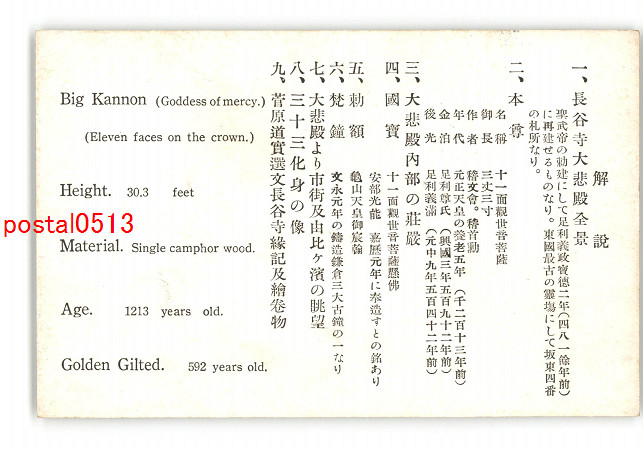 解説
一、長谷寺大悲殿全景
聖武帝の勅建にして足利義政寶德二年(四八一餘年前)
に再建せるものなり。東國最古の靈塲にして坂東四番
の札所なり。
二、本尊
名稱 十一面觀世音菩薩
御長 三丈三寸
作者 稽文會。稽首勳
年代 元正天皇の養老五年(千二百十三年前)
金泊 足利尊氏(興國三年五百九十二年前)
後光 足利義滿(元中九年五百四十二年前)
三、大悲殿內部の莊嚴
四、國寶
十一面觀世音菩薩懸佛
安部光能 嘉曆元年に奉造すとの銘あり
五、勅額
龜山天皇御宸翰
六、梵鐘
文永元年の鑄造鎌倉三大古鐘の一なり
七、大悲殿より市街及由比ヶ濱の眺望
八、三十三化身の像
九、菅原道實選文長谷寺緣記及繪卷物
Big Kannon (Goddess of mercy.)
(Eleven faces on the crown.)
Height. 30.3 feet
Material. Single camphor wood.
Age. 1213 years old.
Golden Gilted. 592 years old.
postal0513